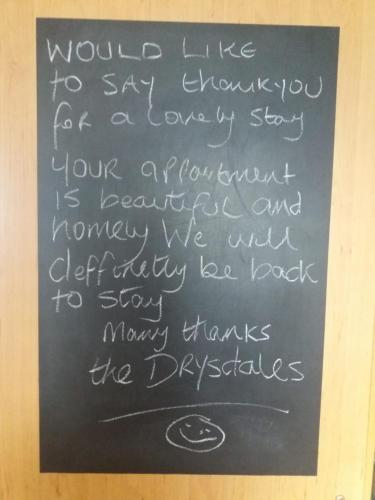 WOULD LIKE
to SAY thankyou
for a lovely stay
YOUR appartment
is beautiful and
homely We will
deffinetly be back
to stay
Many thanks
the DRYSDALES